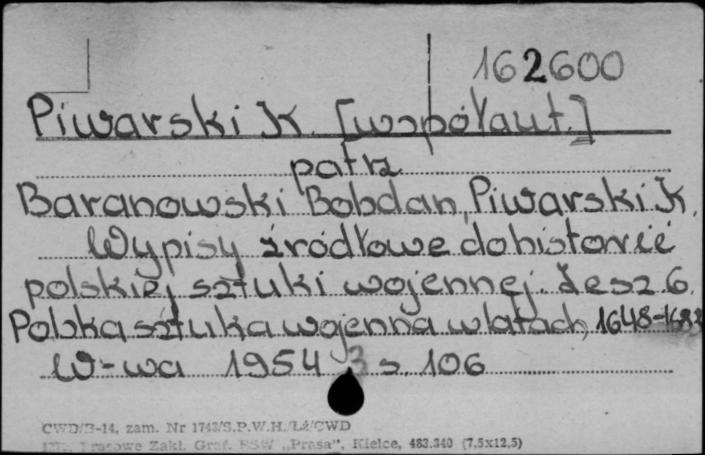 162600
Piwarski K. [współaut.]
patrz
Baranowski Bohdan, Piwarski K.
Wypisy źródłowe do historii
polskiej sztuki wojennej. Zesz 6.
Polska sztuka wojenna w latach 1648-1683
W-wa 1954 s. 106
CWD/B-14, zam. Nr 1743/S.P.W.H./Lż/CWD
Prasowe Zakł. Graf. RSW „Prasa", Kielce, 483.340 (7,5x12,5)